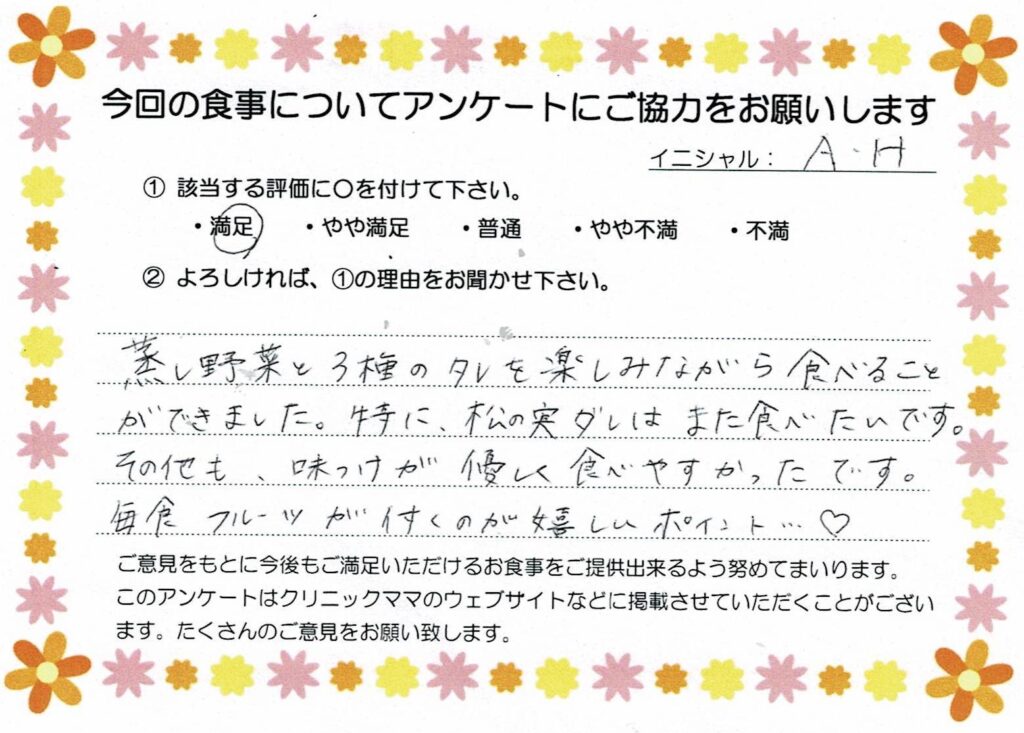 今回の食事についてアンケートにご協力をお願いします
イニシャル： A・H
① 該当する評価に〇を付けて下さい。
・満足 ・やや満足 ・普通 ・やや不満 ・不満
② よろしければ、①の理由をお聞かせ下さい。
蒸し野菜と3種のタレを楽しみながら食べること
ができました。特に、松の実ダレはまた食べたいです。
その他も、味つけが優しく食べやすかったです。
毎食フルーツが付くのが嬉しいポイント…♡
ご意見をもとに今後もご満足いただけるお食事をご提供出来るよう努めてまいります。
このアンケートはクリニックママのウェブサイトなどに掲載させていただくことがござい
ます。たくさんのご意見をお願い致します。